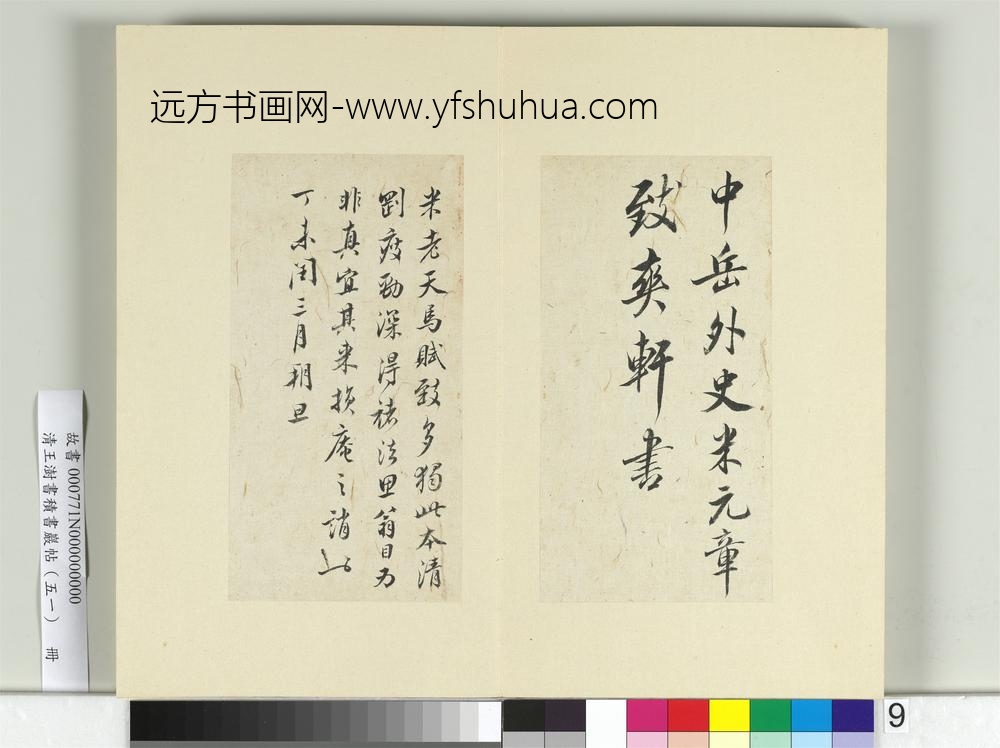 远方书画网-www.yfshuhua.com
中岳外史米元章
致爽軒書
米老天馬賦致多獨此本清
劉疫勁深得褚法思翁目为
非真宜其来損庵之誚也
丁未閏三月朔旦
故書 000771N000000000
清王澍書積書巖帖(五一) 冊
9